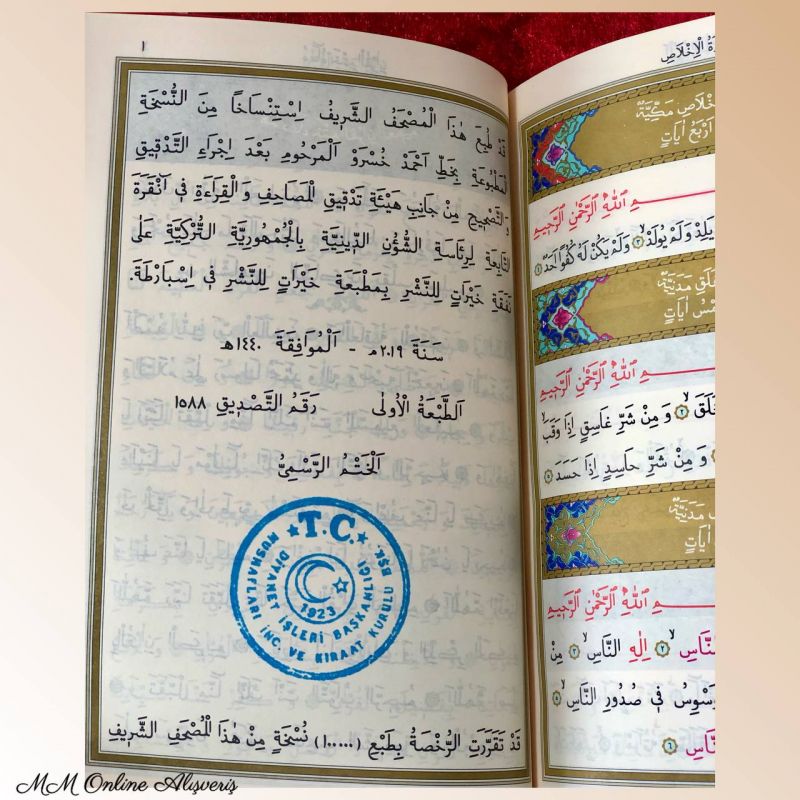 ١
قَدْ طُبِعَ هٰذَا الْمُصْحَفُ الشَّرِيفُ اِسْتِنْسَاخًا مِنَ النُّسْخَةِ
الْمَطْبُوعَةِ بِخَطِّ اَحْمَدْ خُسْرَوْ الْمَرْحُومِ بَعْدَ اِجْرَاءِ التَّدْقِيقِ
وَالتَّصْحِيحِ مِنْ جَانِبِ هَيْئَةِ تَدْقِيقِ الْمَصَاحِفِ وَالْقِرَاءَةِ فِي اَنْقَرَةَ
التَّابِعَةِ لِرِئَاسَةِ الشُّؤُنِ الدِّينِيَّةِ بِالْجُمْهُورِيَّةِ التُّرْكِيَّةِ عَلٰى
نَفَقَةِ خَيْرَاتٍ لِلنَّشْرِ بِمَطْبَعَةِ خَيْرَاتٍ لِلنَّشْرِ فِي اِسْبَارْطَةَ.
سَنَةَ ٢٠١٩م - اَلْمُوَافِقَةَ ١٤٤٠هـ
اَلطَّبْعَةُ الْاُولٰى رَقَمُ التَّصْدِيقِ ١٥٨٨
اَلْخَتْمُ الرَّسْمِيُّ
T.C.
DİYANET İŞLERİ BAŞKANLIĞI
MUSHAFLARI İNC. VE KIRAAT KURULU BŞK.
1923
قَدْ تَقَرَّرَتِ الرُّخْصَةُ بِطَبْعِ (١٠٠٠٠٠) نُسْخَةٍ مِنْ هٰذَا الْمُصْحَفِ الشَّرِيفِ
الْاِخْلَاصِ
مَكِّيَّةٌ
اَرْبَعُ اٰيَاتٍ
اللّٰهِ الرَّحْمٰنِ الرَّحِيمِ
يَلِدْ وَلَمْ يُولَدْۙ ﴿٣﴾ وَلَمْ يَكُنْ لَهُ كُفُوًا اَحَدٌ ﴿٤﴾
مَدَنِيَّةٌ
اٰيَاتٍ
اللّٰهِ الرَّحْمٰنِ الرَّحِيمِ
خَلَقَۙ ﴿٢﴾ وَمِنْ شَرِّ غَاسِقٍ اِذَا وَقَبَۙ
وَمِنْ شَرِّ حَاسِدٍ اِذَا حَسَدَ ﴿٥﴾
مَدَنِيَّةٌ
اٰيَاتٍ
اللّٰهِ الرَّحْمٰنِ الرَّحِيمِ
النَّاسِۙ ﴿٢﴾ اِلٰهِ النَّاسِۙ ﴿٣﴾ مِنْ
فِي صُدُورِ النَّاسِۙ ﴿٥﴾
﴿٦﴾
MM Online Alışveriş